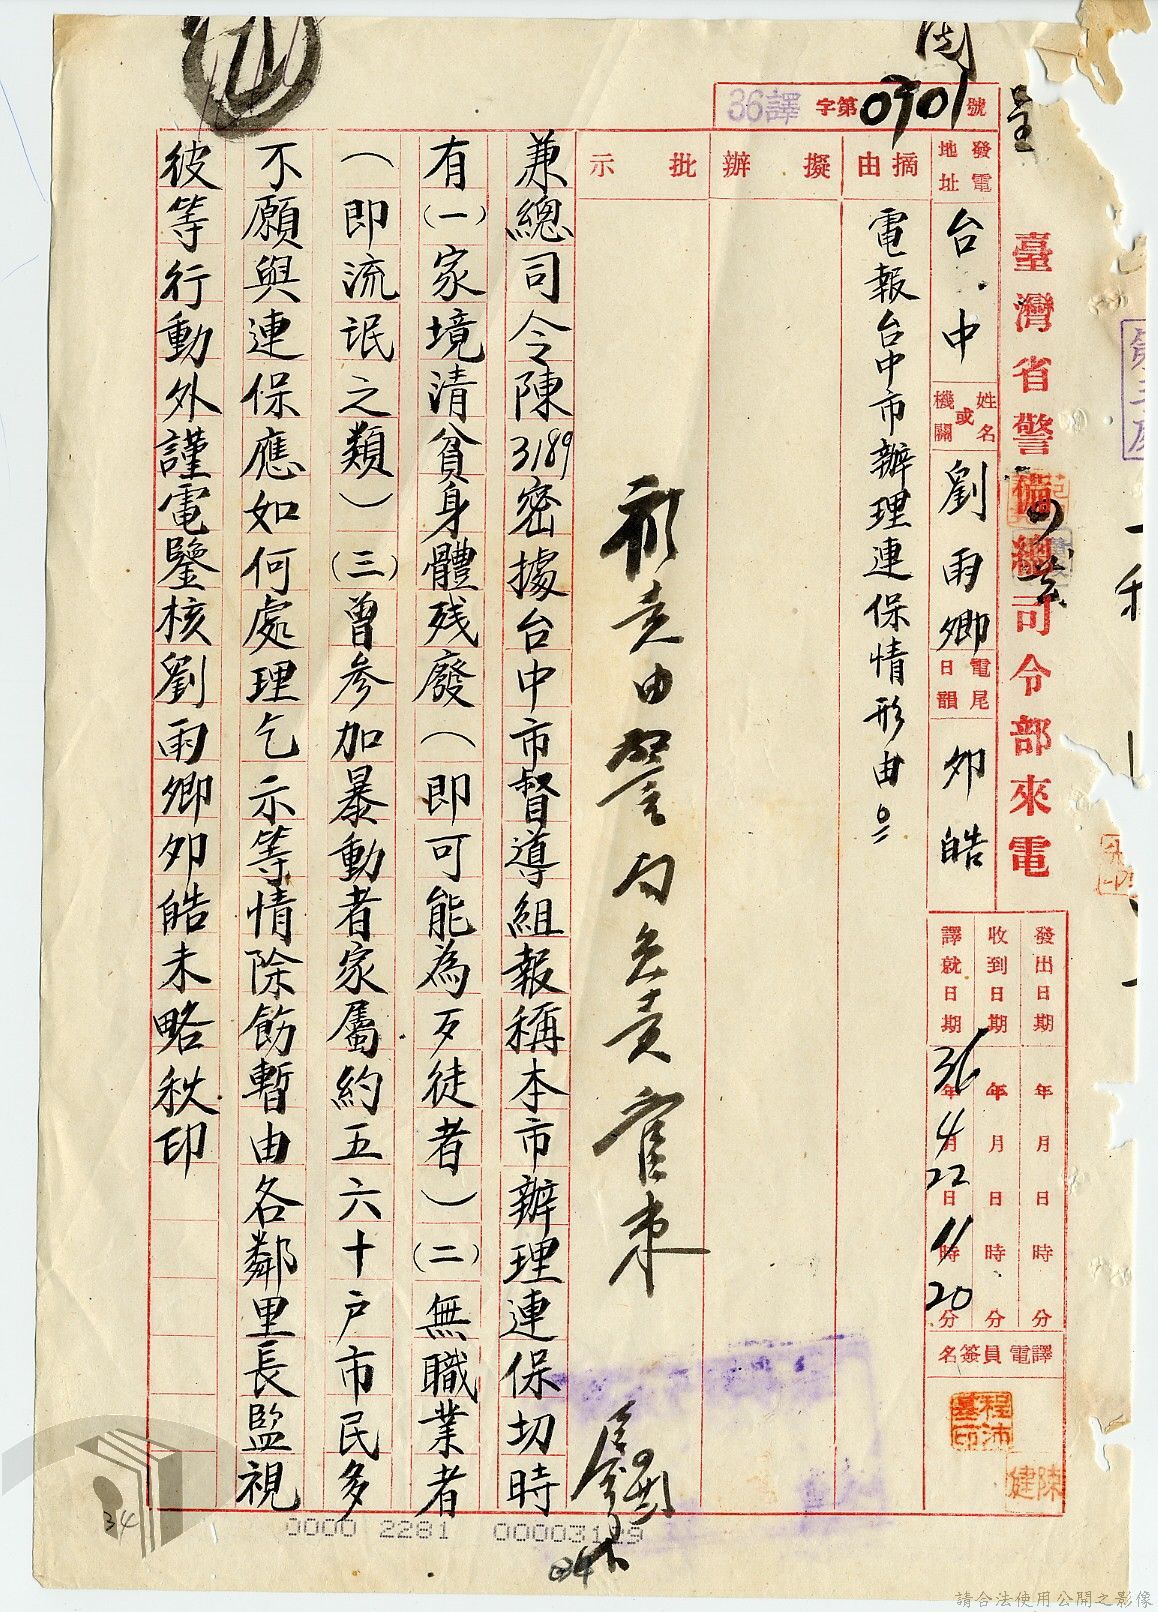 臺灣省警備總司令部來電
36譯字第0701號
發電地址
台中
姓名或機關
劉雨卿
電尾日韻
卯皓
發出日期 年 月 日 時 分
收到日期 年 月 日 時 分
譯就日期 36年4月22日11時20分
譯電員簽名
程沛墓印
陳健
摘由
電報台中市辦理連保情形由
擬辦
批示
兼總司令陳3189密據台中市督導組報稱本市辦理連保切時
有(一)家境清貧身體殘廢(即可能為歹徒者)(二)無職業者
(即流氓之類)(三)曾參加暴動者家屬約五六十戶市民多
不願與連保應如何處理乞示等情除飭暫由各鄰里長監視
彼等行動外謹電鑒核劉雨卿卯皓未略秋印
34
0000 2281 00003129
請合法使用公開之影像